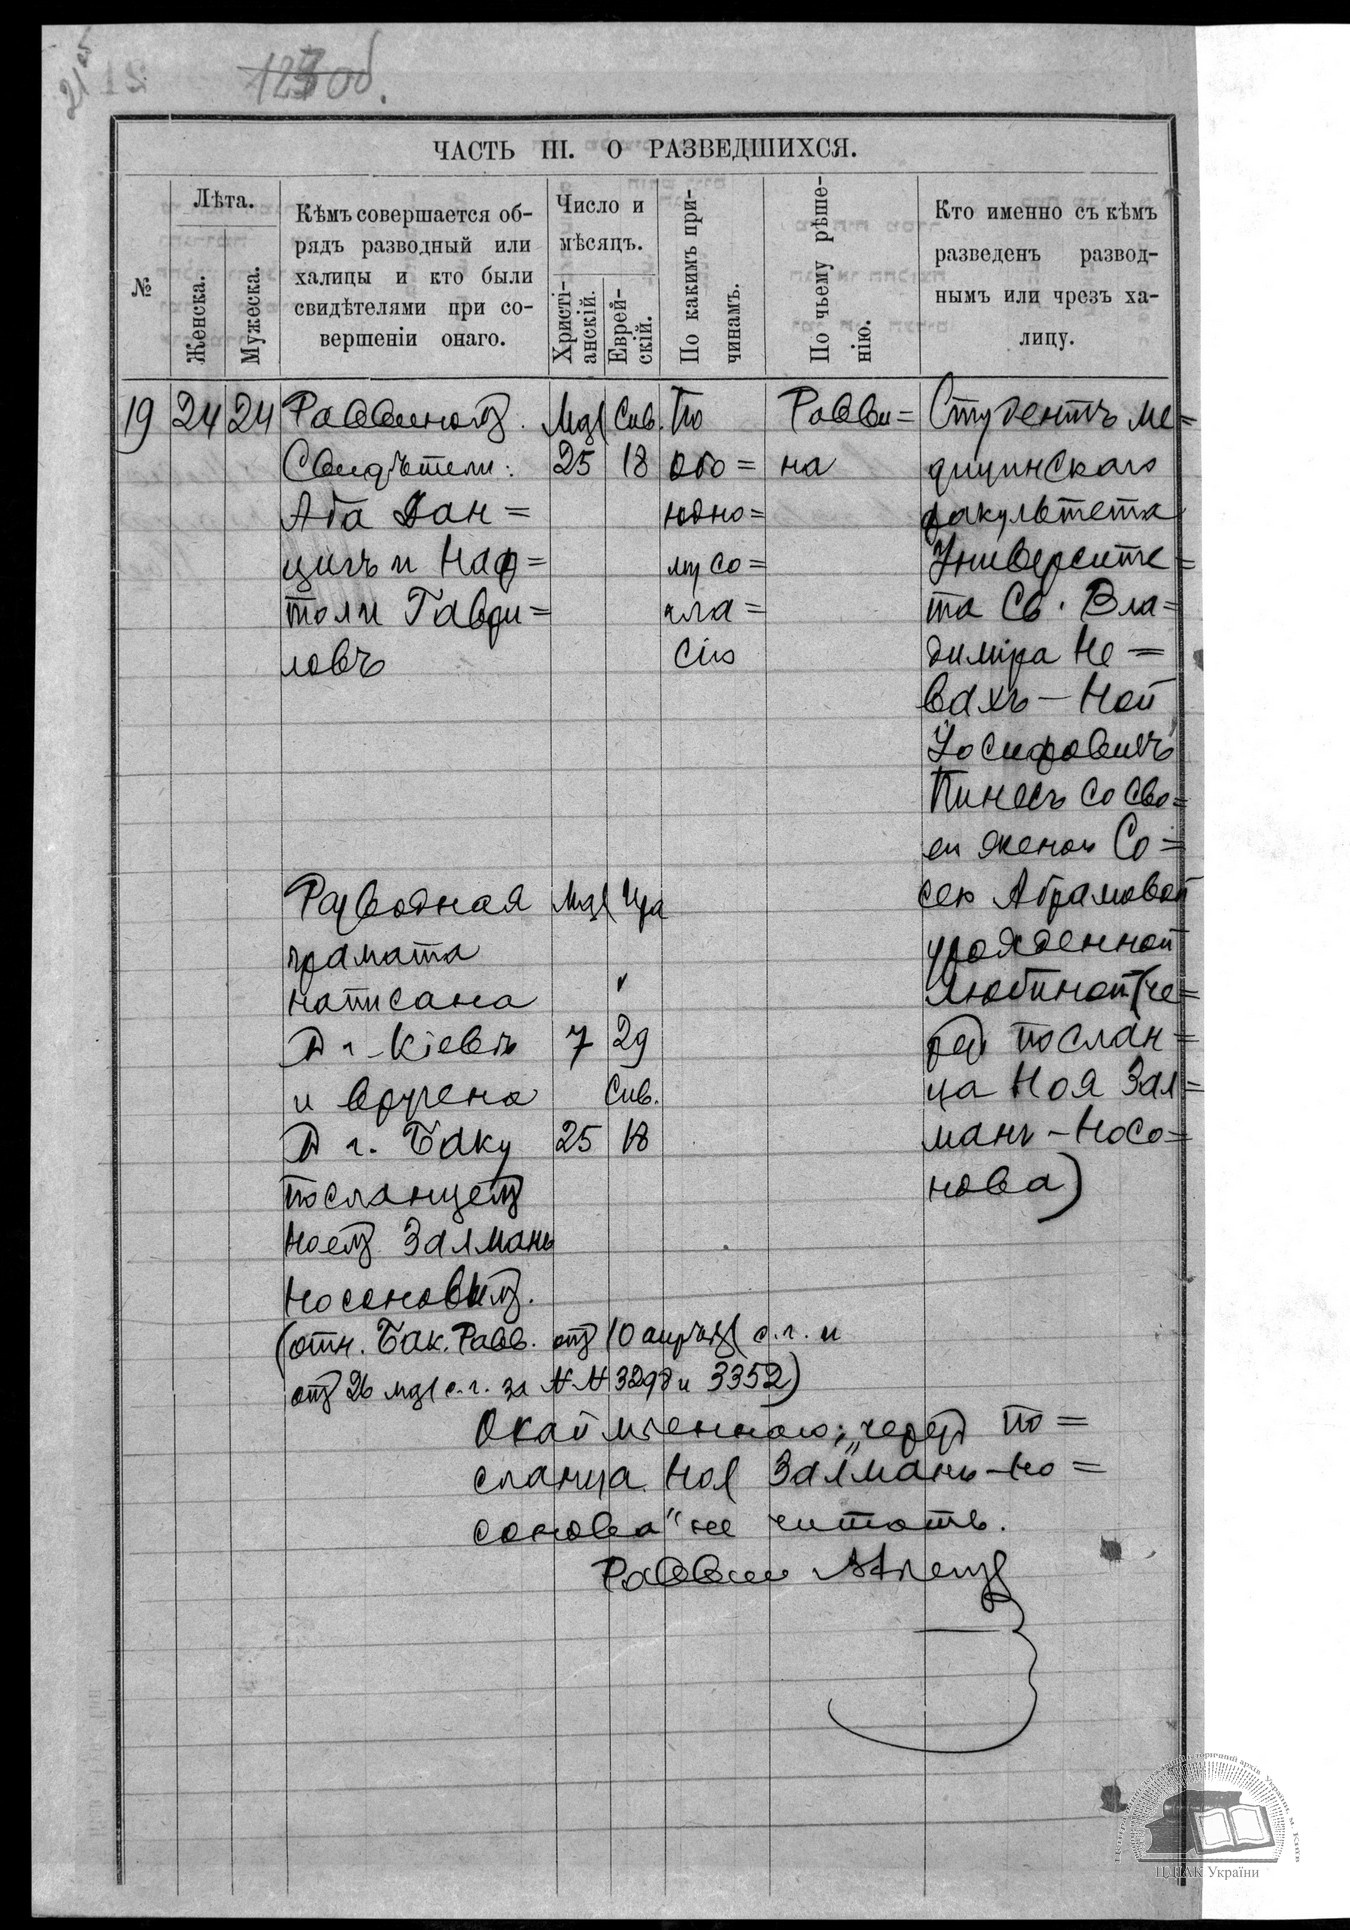 ЧАСТЬ III. О РАЗВЕДШИХСЯ.
№
Лѣта.
Женска.
Мужеска.
Кѣмъ совершается об-
рядъ разводный или
халицы и кто были
свидѣтелями при со-
вершеніи онаго.
Число и
мѣсяцъ.
Христі-
анскій.
Еврей-
скій.
По какимъ при-
чинамъ.
По чьему рѣше-
нію.
Кто именно съ кѣмъ
разведенъ развод-
нымъ или чрезъ ха-
лицу.
19
24
24
Раввиномъ.
Свидѣтели:
Аба Дан=
цигъ и Наф=
толи Гаври=
ловъ
Мая
25
Сив.
18
По
обо=
юдно=
му со=
гла=
сію
Равви=
на
Студентъ ме=
дицинскаго
факультета
Университе=
та Св. Вла=
диміра Не=
вахъ-Ной
Іосифовичъ
Пинесъ со сво=
ей женой Со=
сею Абрамовой
урожденной
Любиной (че=
резъ послан=
ца Ноя Зал=
манъ-Носо=
нова)
Разводная
грамата
написана
в г. Кіевѣ
и вручена
в г. Баку
посланцемъ
Ноемъ Залманъ
Носоновымъ.
Мая
7
25
Ияра
29
Сив.
18
(отн. Бак. Равв. отъ 10 апрѣля с.г. и
отъ 26 мая с.г. за №№ 3298 и 3352)
Окаймленного: „черезъ по=
сланца Ноя Залманъ-Но=
сонова“ не читать.
Раввин
ЦДІАК України